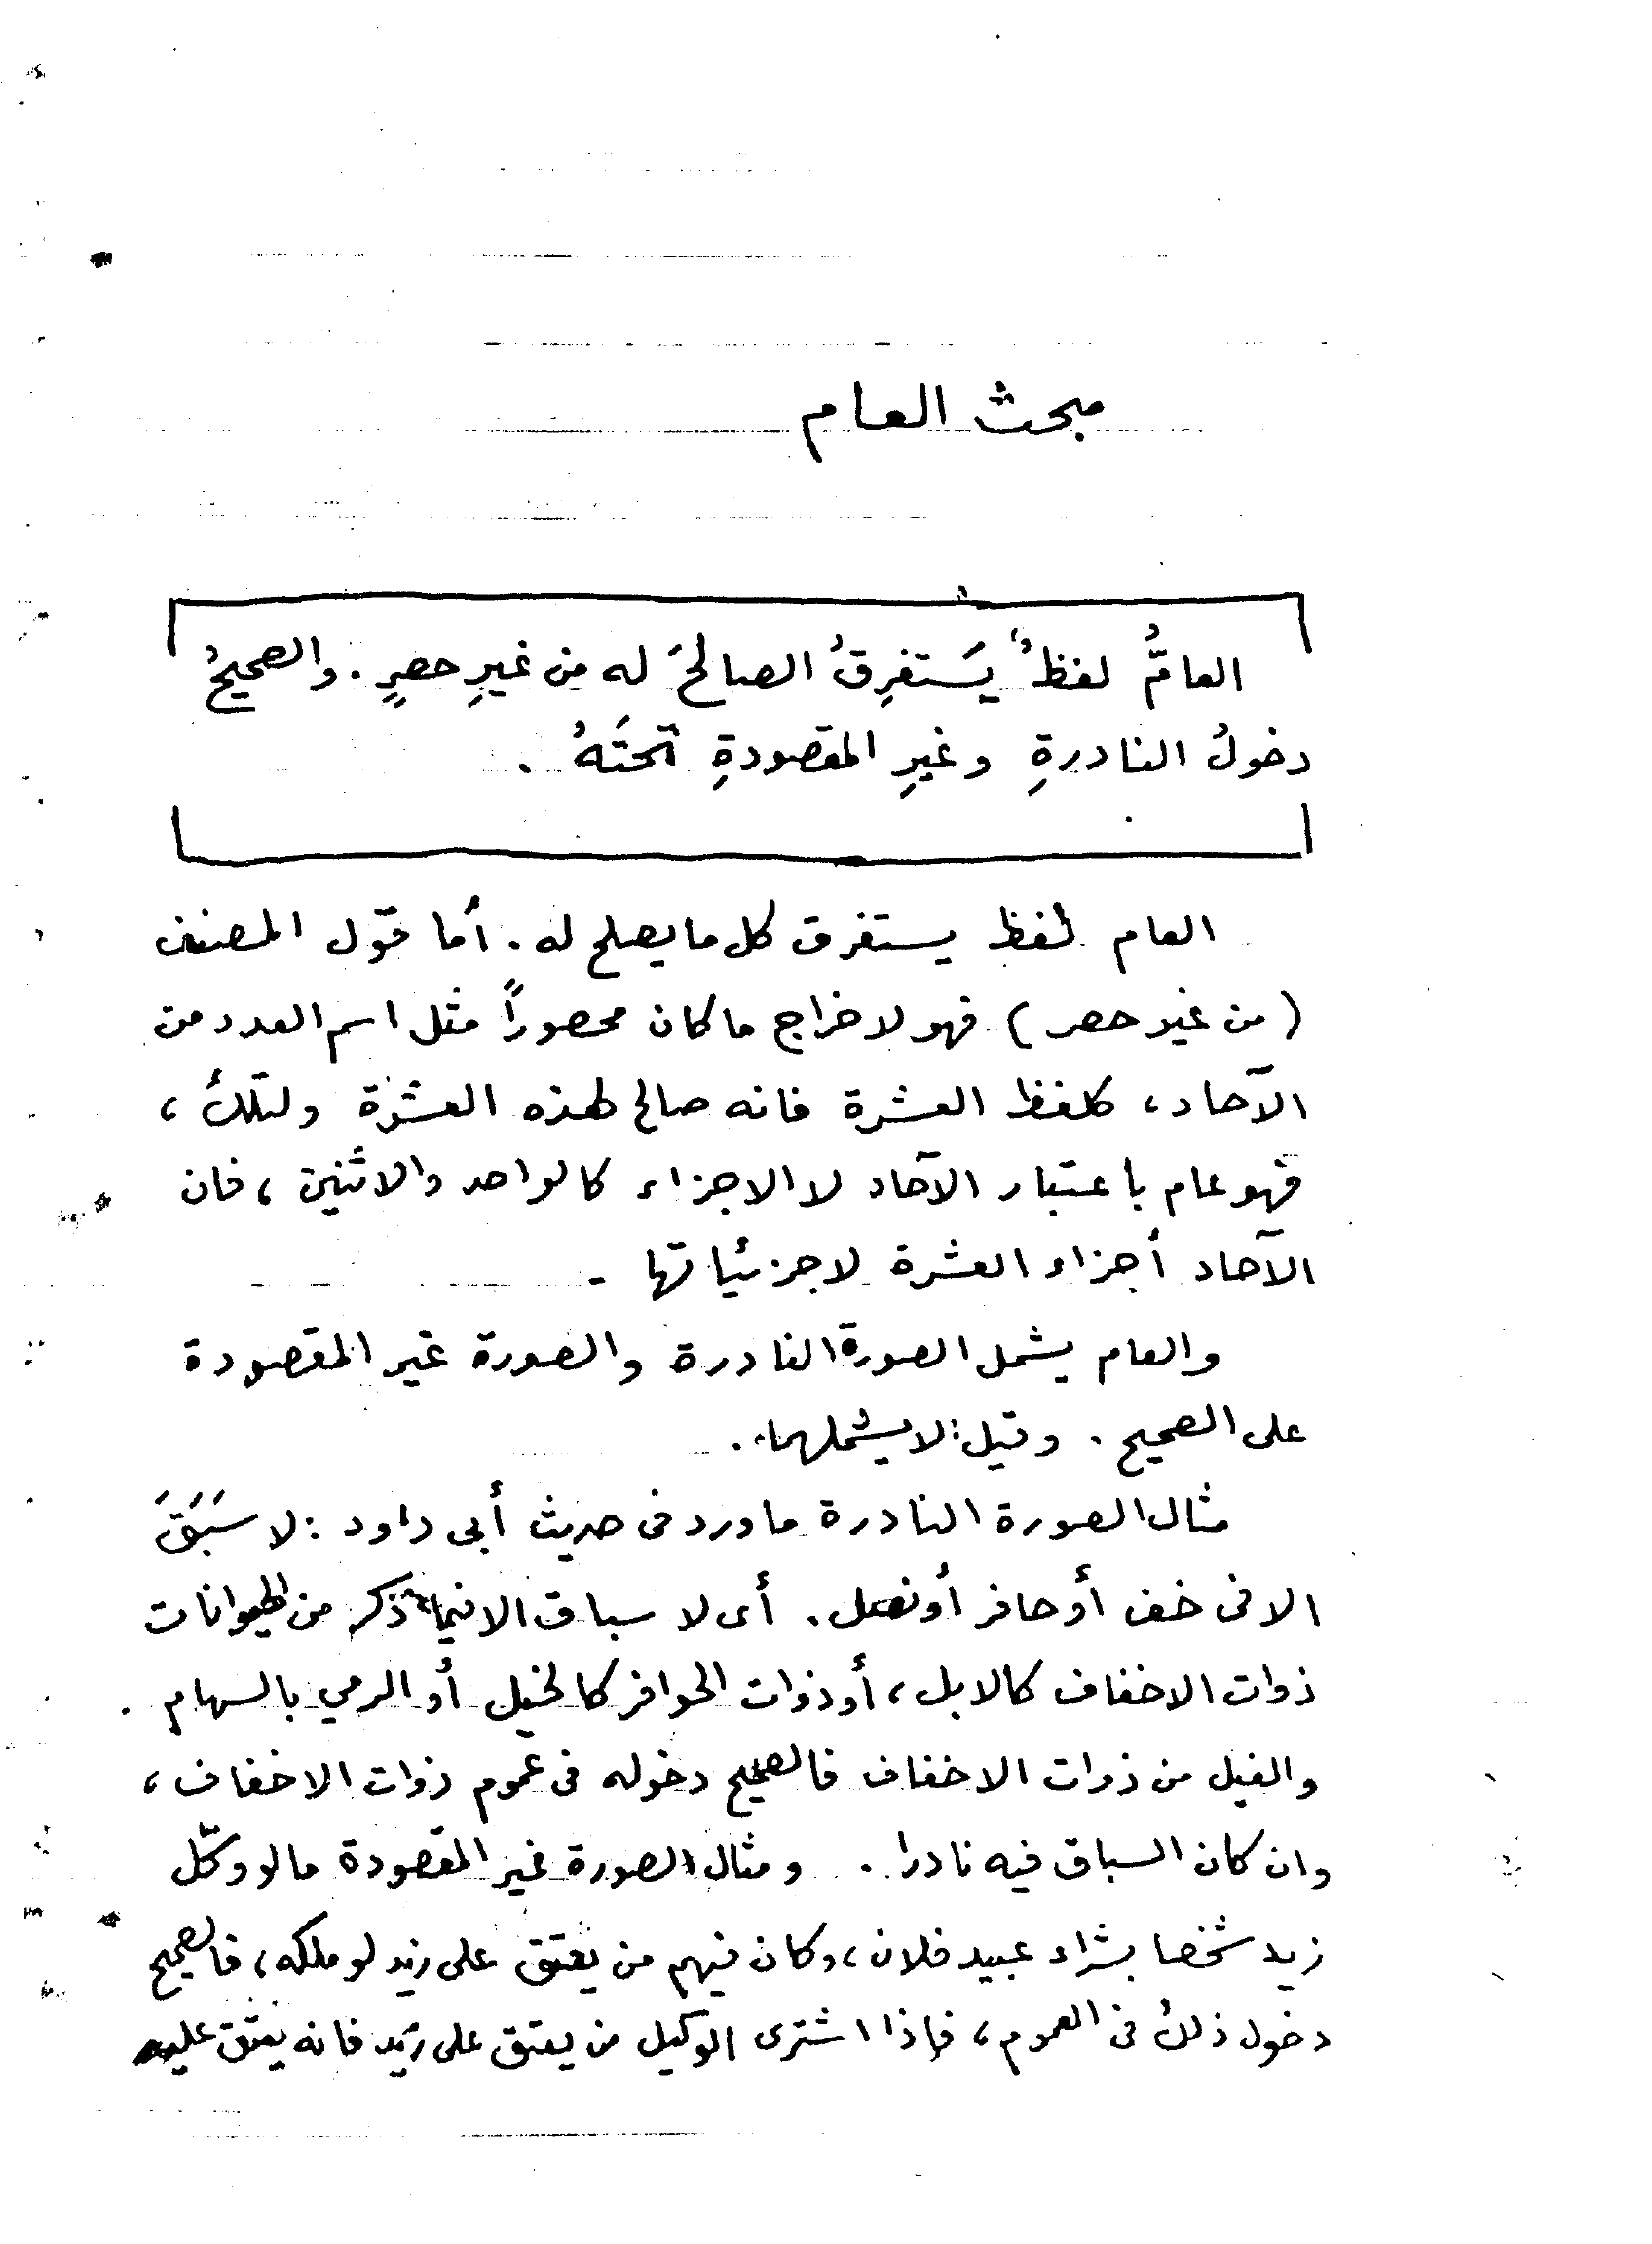 مبحث العام
العامُّ لفظٌ يَستغرِقُ الصالحَ له من غيرِ حصرٍ . والصحيحُ
دخولُ النادرةِ وغيرِ المقصودةِ تحتَهُ .
العام لفظ يستغرق كل ما يصلح له . أما قول المصنف
( من غير حصر ) فهو لاخراج ما كان محصوراً مثل اسم العدد من
الآحاد ، كلفظ العشرة فانه صالح لهذه العشرة ولتلك ،
فهو عام باعتبار الآحاد لا الاجزاء كالواحد والاثنين ، فان
الآحاد أجزاء العشرة لا جزئياتها -
والعام يشمل الصورة النادرة والصورة غير المقصودة
على الصحيح . وقيل : لا يشملهما .
مثال الصورة النادرة ما ورد في حديث أبي داود : لا سَبَقَ
الا في خف أو حافر أو نصل . أى لا سباق الا فيما ذكر من الحيوانات
ذوات الاخفاف كالابل ، أو ذوات الحوافر كالخيل أو الرمي بالسهام .
والفيل من ذوات الاخفاف فالصحيح دخوله في عموم ذوات الاخفاف ،
وان كان السباق فيه نادرا . ومثال الصورة غير المقصودة ما لو وكّل
زيد شخصا بشراء عبيد فلان ، وكان فيهم من يعتق على زيد لو ملكه ، فالصحيح
دخول ذلك في العموم ، فإذا اشترى الوكيل من يعتق على زيد فانه يعتق عليه